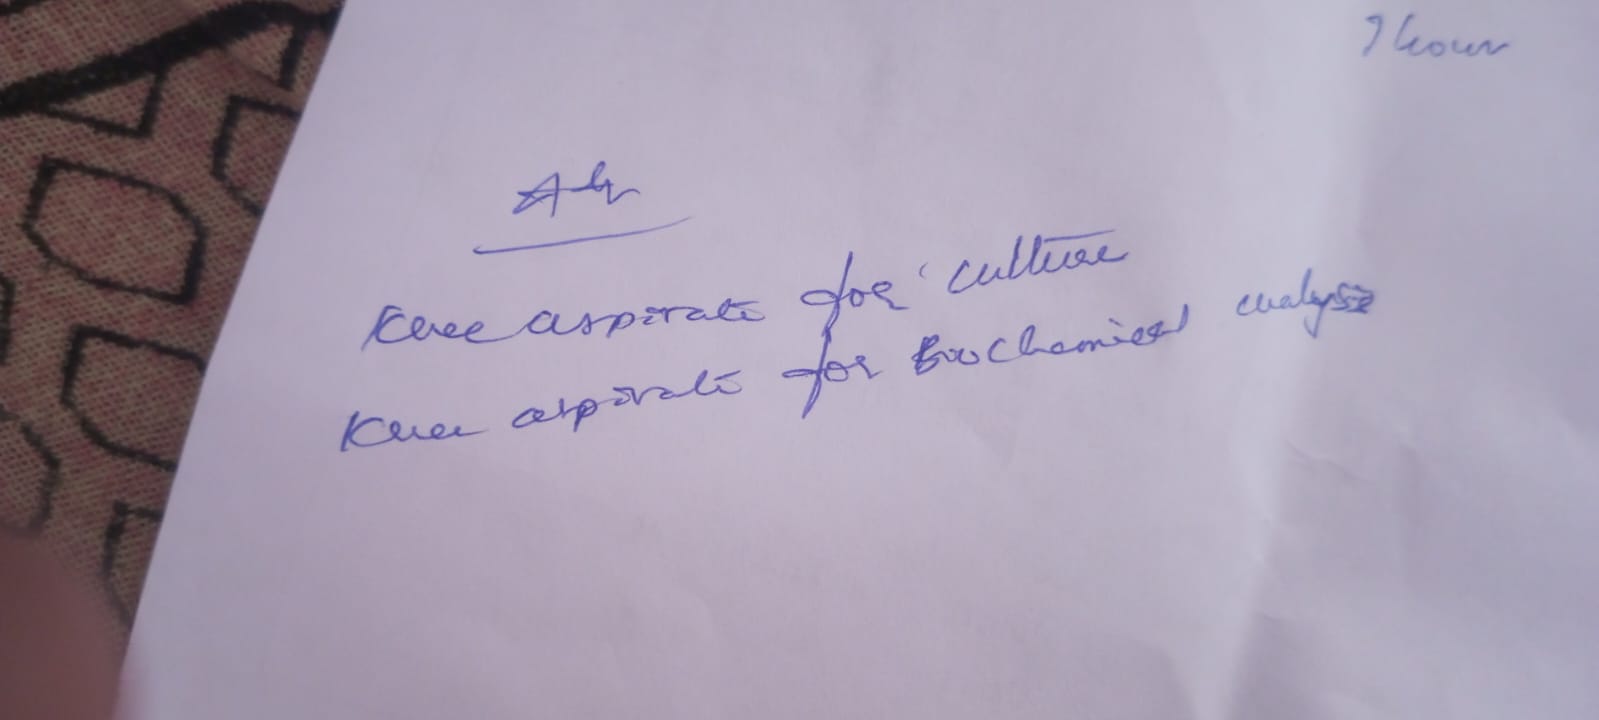 Knee aspirate for culture
Knee aspirate for Biochemical analysis